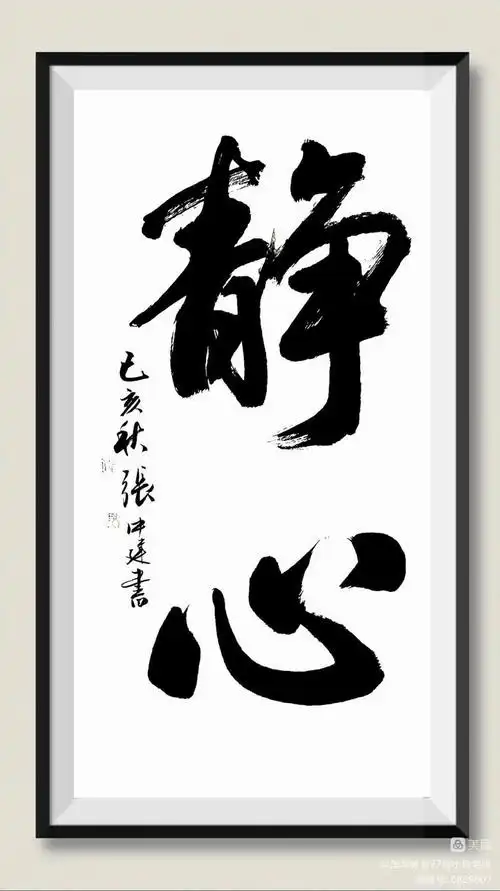 静心
己亥秋張中建書
美篇